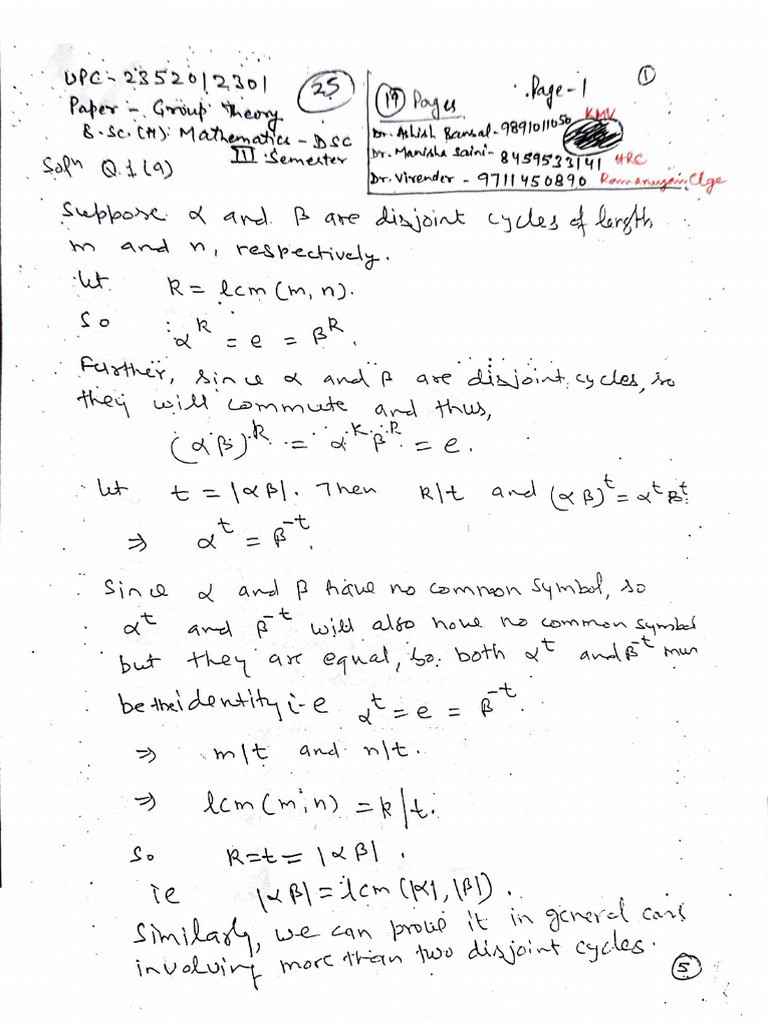 ①
UPC - 2352012301
Paper - Group Theory
B.Sc.(H) Mathematics - DSC
III Semester
25
19 Pages
Page-1
Dr. Ashish Bansal - 9891011050 KMV
Dr. Manisha Saini - 8459533141 HRC
Dr. Virender - 9711450890 Ramanujan Clge
Soln Q.1(a)
Suppose α and β are disjoint cycles of length
m and n, respectively.
Let k = lcm(m, n).
So α^k = e = β^k.
Further, since α and β are disjoint cycles, so
they will commute and thus,
(αβ)^k = α^k β^k = e.
Let t = |αβ|. Then k|t and (αβ)^t = α^t β^t
⇒ α^t = β^-t.
Since α and β have no common symbol, so
α^t and β^-t will also have no common symbol
but they are equal, so both α^t and β^-t mus
be the identity i-e α^t = e = β^-t.
⇒ m|t and n|t.
⇒ lcm(m,n) = k|t.
So k=t=|αβ|.
ie |αβ| = lcm(|α|, |β|).
Similarly, we can prove it in general case
involving more than two disjoint cycles.
⑤